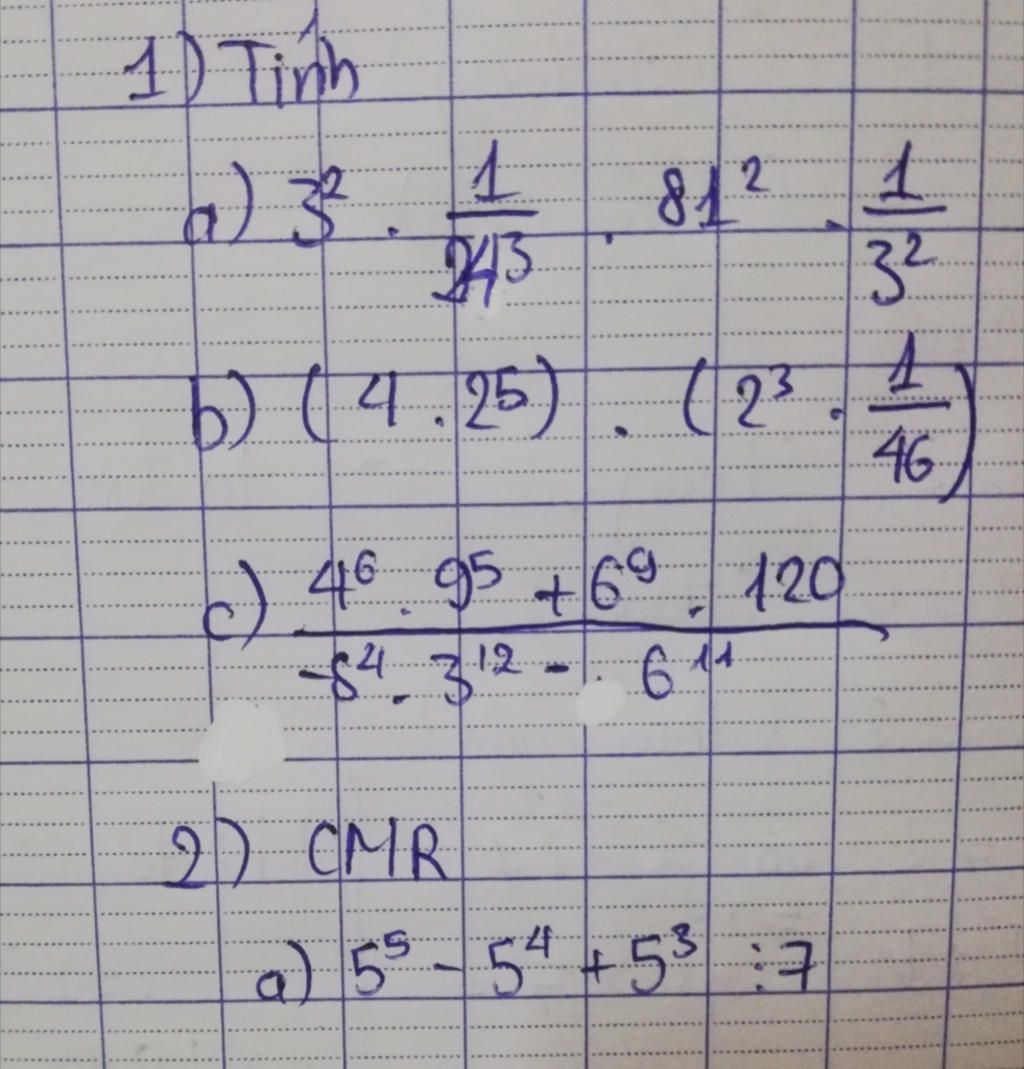 1) Tính
a) 3² . 1/243 . 81² . 1/3²
b) (4 . 2⁵) . (2³ . 1/46)
c) (4⁶ . 9⁵ + 6⁹ . 120)/(-8⁴ . 3¹² - . 6¹¹)
2) CMR
a) 5⁵ - 5⁴ + 5³ ⋮ 7